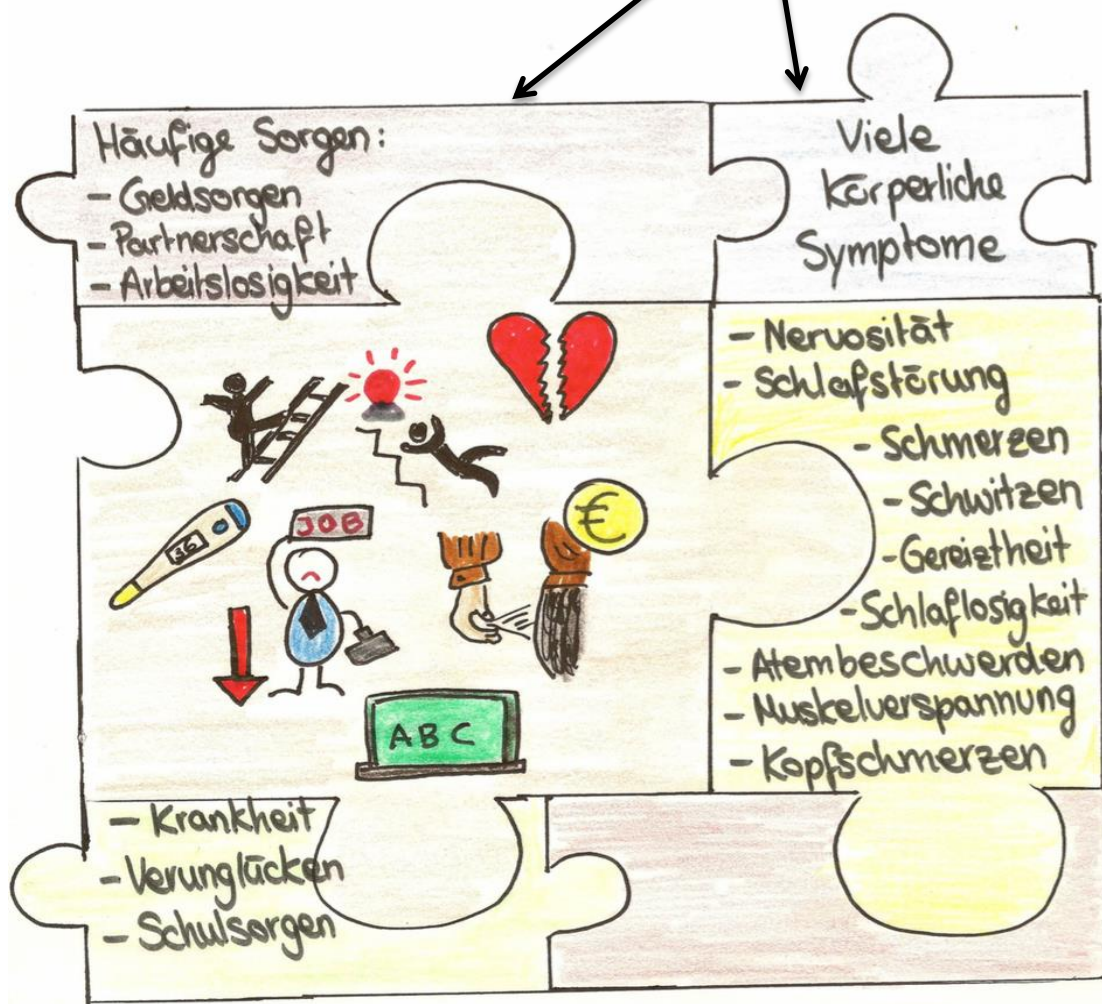 Häufige Sorgen:
- Geldsorgen
- Partnerschaft
- Arbeitslosigkeit
Viele
Körperliche
Symptome
- Nervosität
- Schlafstörung
- Schmerzen
- Schwitzen
- Gereiztheit
- Schlaflosigkeit
- Atembeschwerden
- Muskelverspannung
- Kopfschmerzen
36
JOB
€
ABC
- Krankheit
- Verunglücken
- Schulsorgen